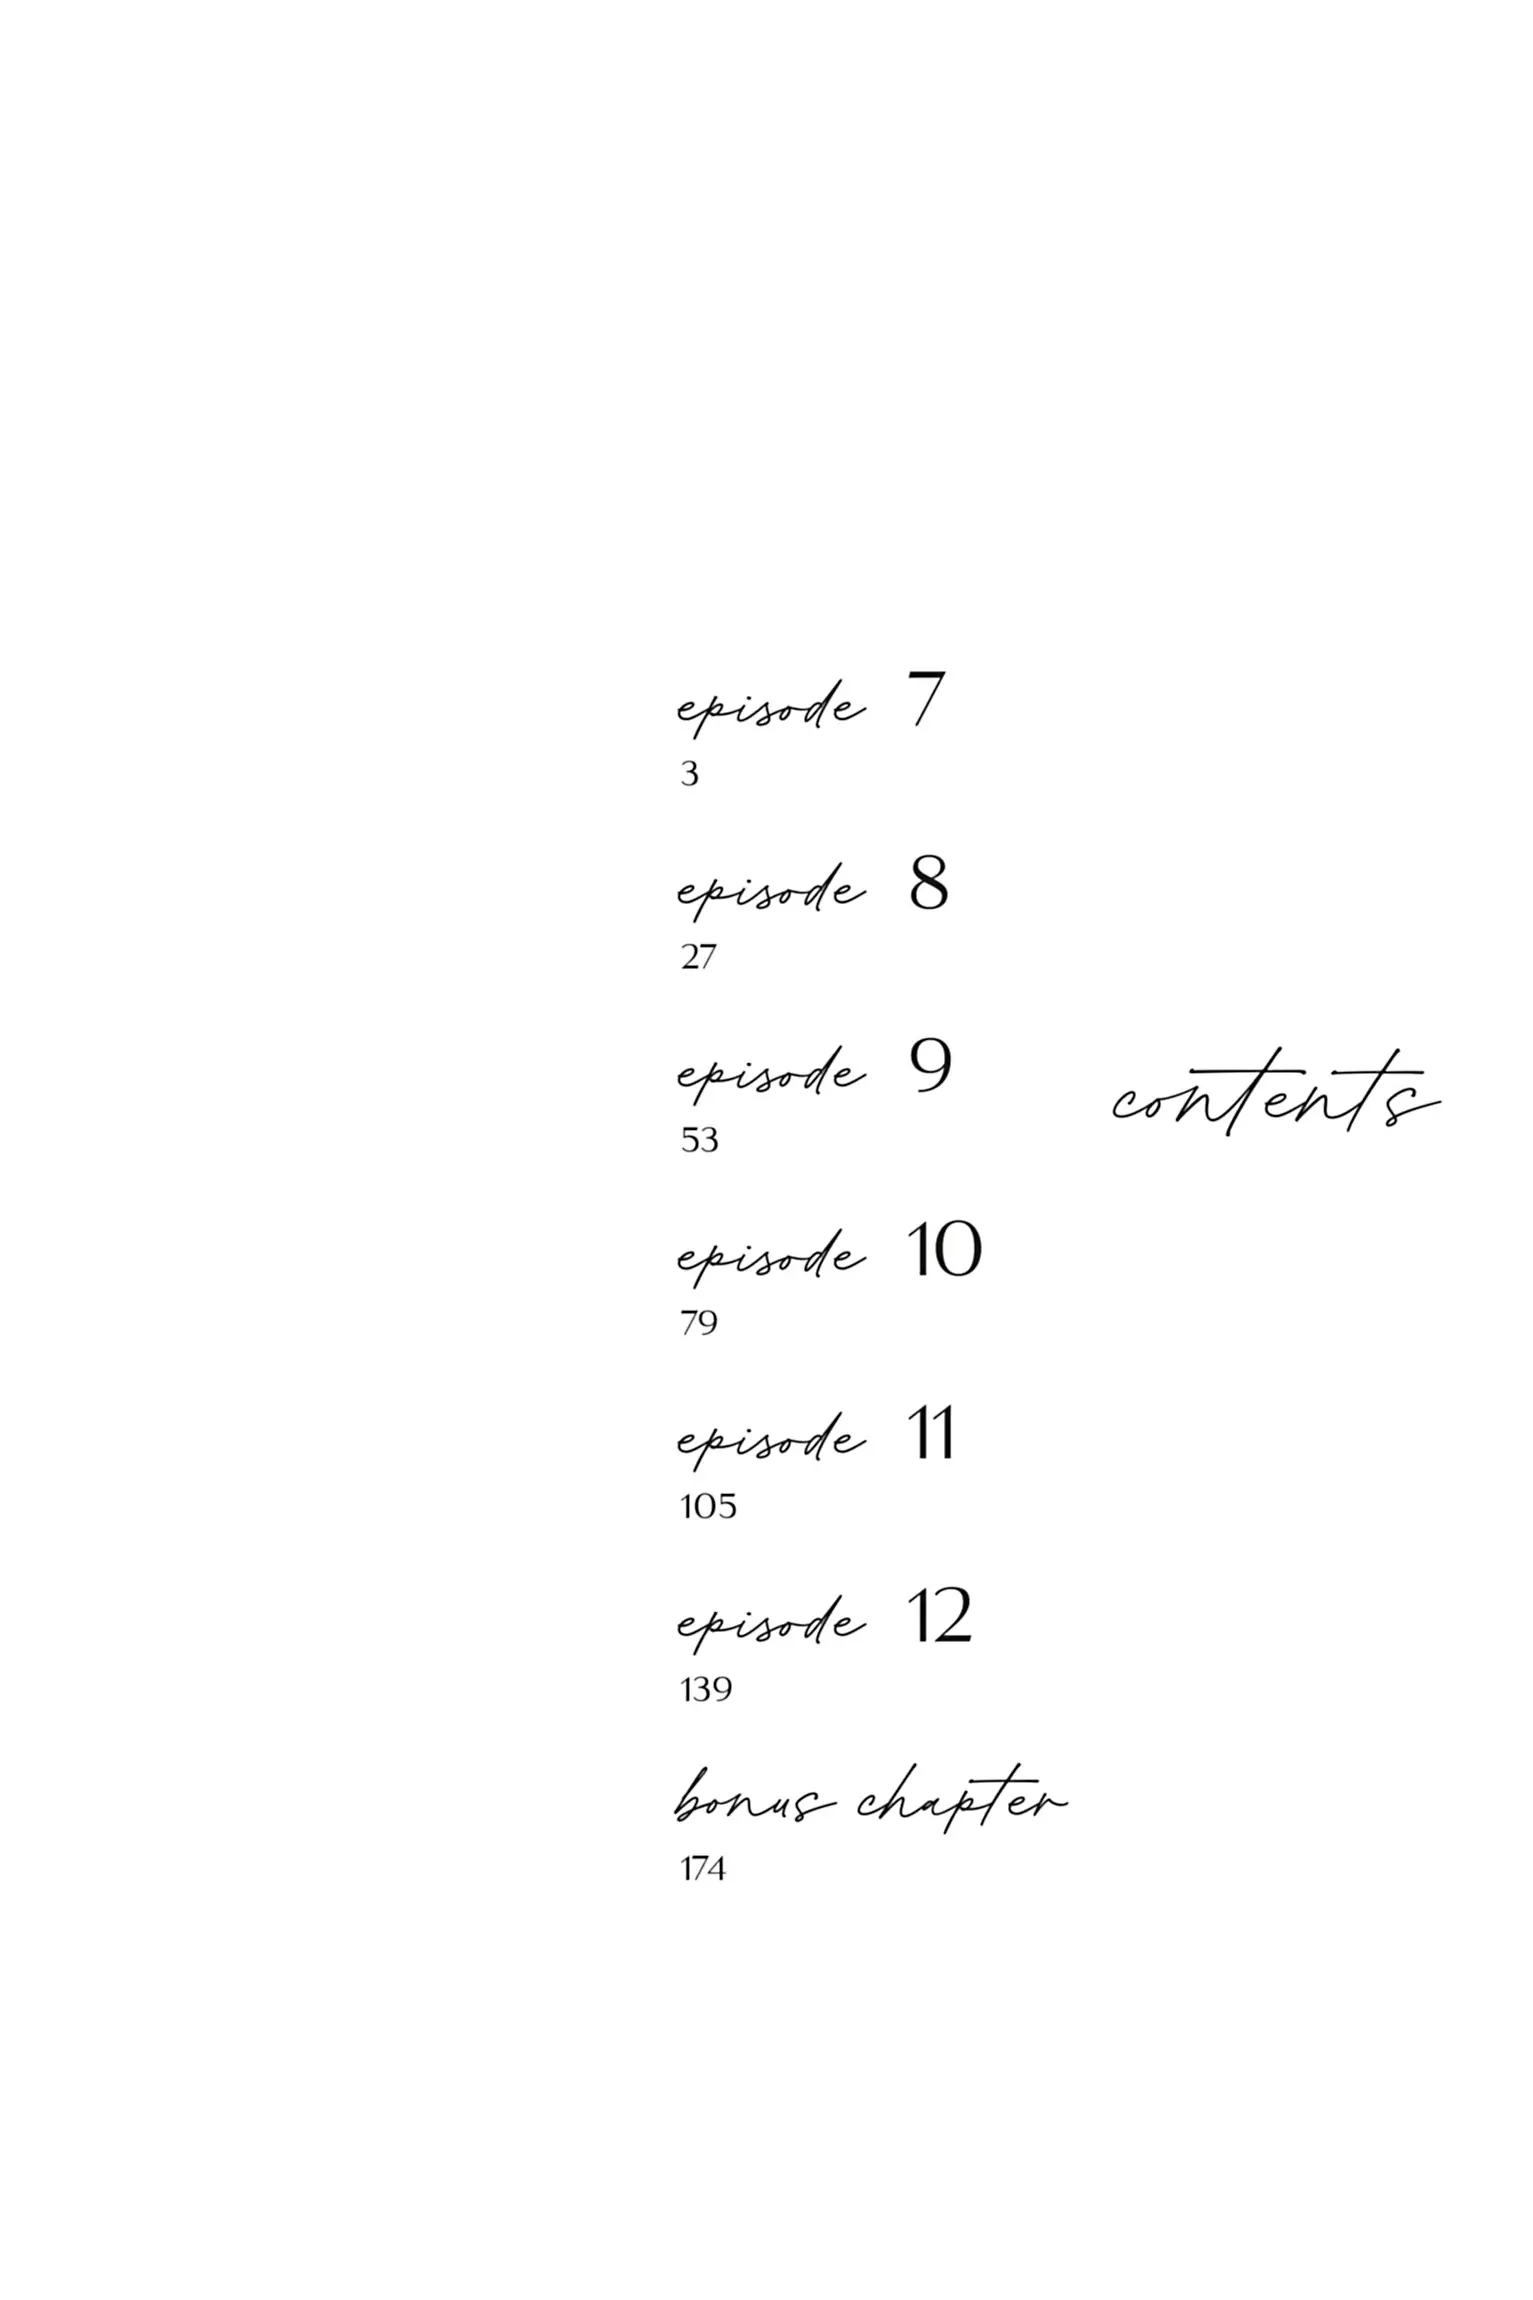 contents
episode 7
3
episode 8
27
episode 9
53
episode 10
79
episode 11
105
episode 12
139
bonus chapter
174